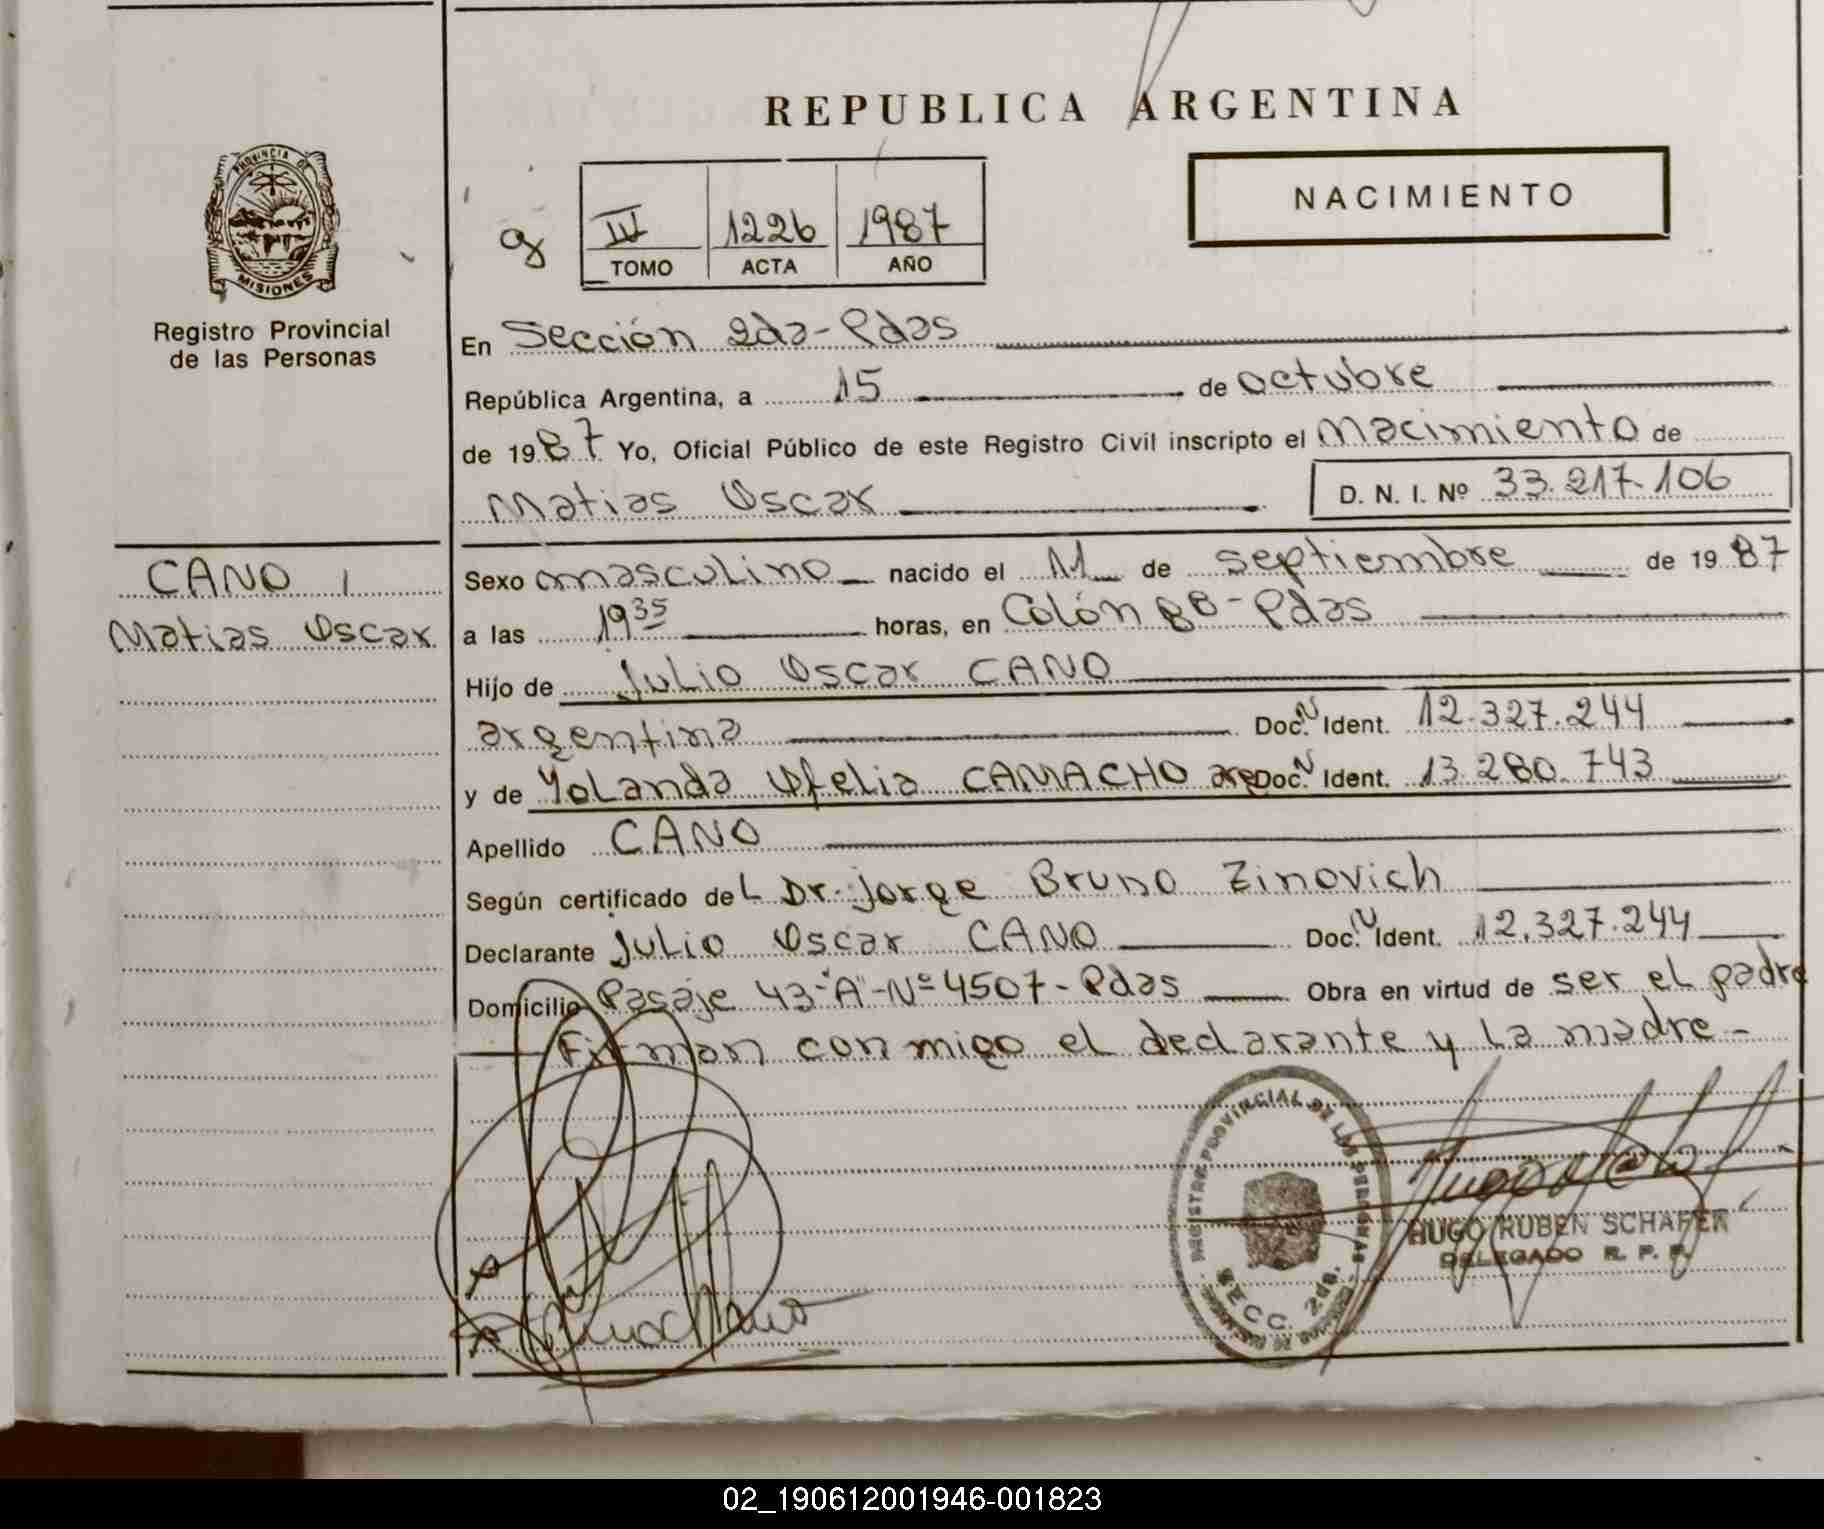 REPUBLICA ARGENTINA
PROVINCIA DE
MISIONES
Registro Provincial
de las Personas
g
IV 1226 1987
TOMO ACTA AÑO
NACIMIENTO
En Sección 2da-Pdas
República Argentina, a 15 de octubre
de 1987 Yo, Oficial Público de este Registro Civil inscripto el Nacimiento de
Matias Oscar D. N. I. Nº 33.217.106
CANO,
Matias Oscar
Sexo masculino nacido el 11 de septiembre de 1987
a las 19 35 horas, en Colón BB-Pdas
Hijo de Julio Oscar CANO
argentina Doc. N Ident. 12.327.244
y de Yolanda Ofelia CAMACHO arg Doc. N Ident. 13.280.743
Apellido CANO
Según certificado del Dr. Jorge Bruno Zinovich
Declarante Julio Oscar CANO Doc. N Ident. 12.327.244
Domicilio Pasaje 43-"A"-Nº 4507-Pdas Obra en virtud de ser el padre
Firman conmigo el declarante y la madre-
REGISTRO PROVINCIAL DE LAS PERSONAS
SECC. 2da.
HUGO RUBEN SCHAFER
DELEGADO R. P. P.
02_190612001946-001823